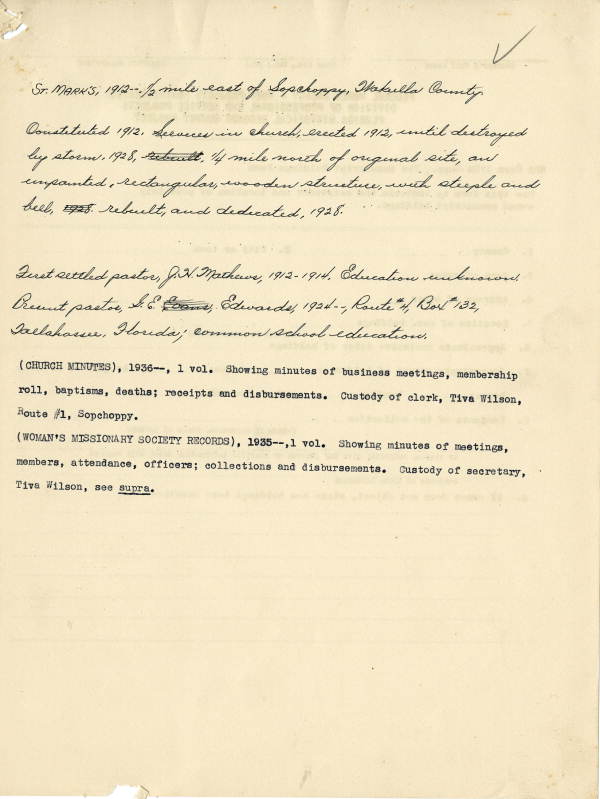 ST. MARKS, 1912--. 1/2 mile east of Sopchoppy, Wakulla County.
Constituted 1912. Services in church, erected 1912, until destroyed
by storm, 1928, rebuilt 1/4 mile north of original site, an
unpainted, rectangular, wooden structure, with steeple and
bell, 1928 rebuilt, and dedicated, 1928.
First settled pastor, J. H. Mathews, 1912-1914. Education unknown.
Present pastor, G. E. Evans, Edwards, 1924--, Route #4, Box #132,
Tallahassee, Florida; common school education.
(CHURCH MINUTES), 1936--, 1 vol. Showing minutes of business meetings, membership
roll, baptisms, deaths; receipts and disbursements. Custody of clerk, Tiva Wilson,
Route #1, Sopchoppy.
(WOMAN'S MISSIONARY SOCIETY RECORDS), 1935--,1 vol. Showing minutes of meetings,
members, attendance, officers; collections and disbursements. Custody of secretary,
Tiva Wilson, see supra.